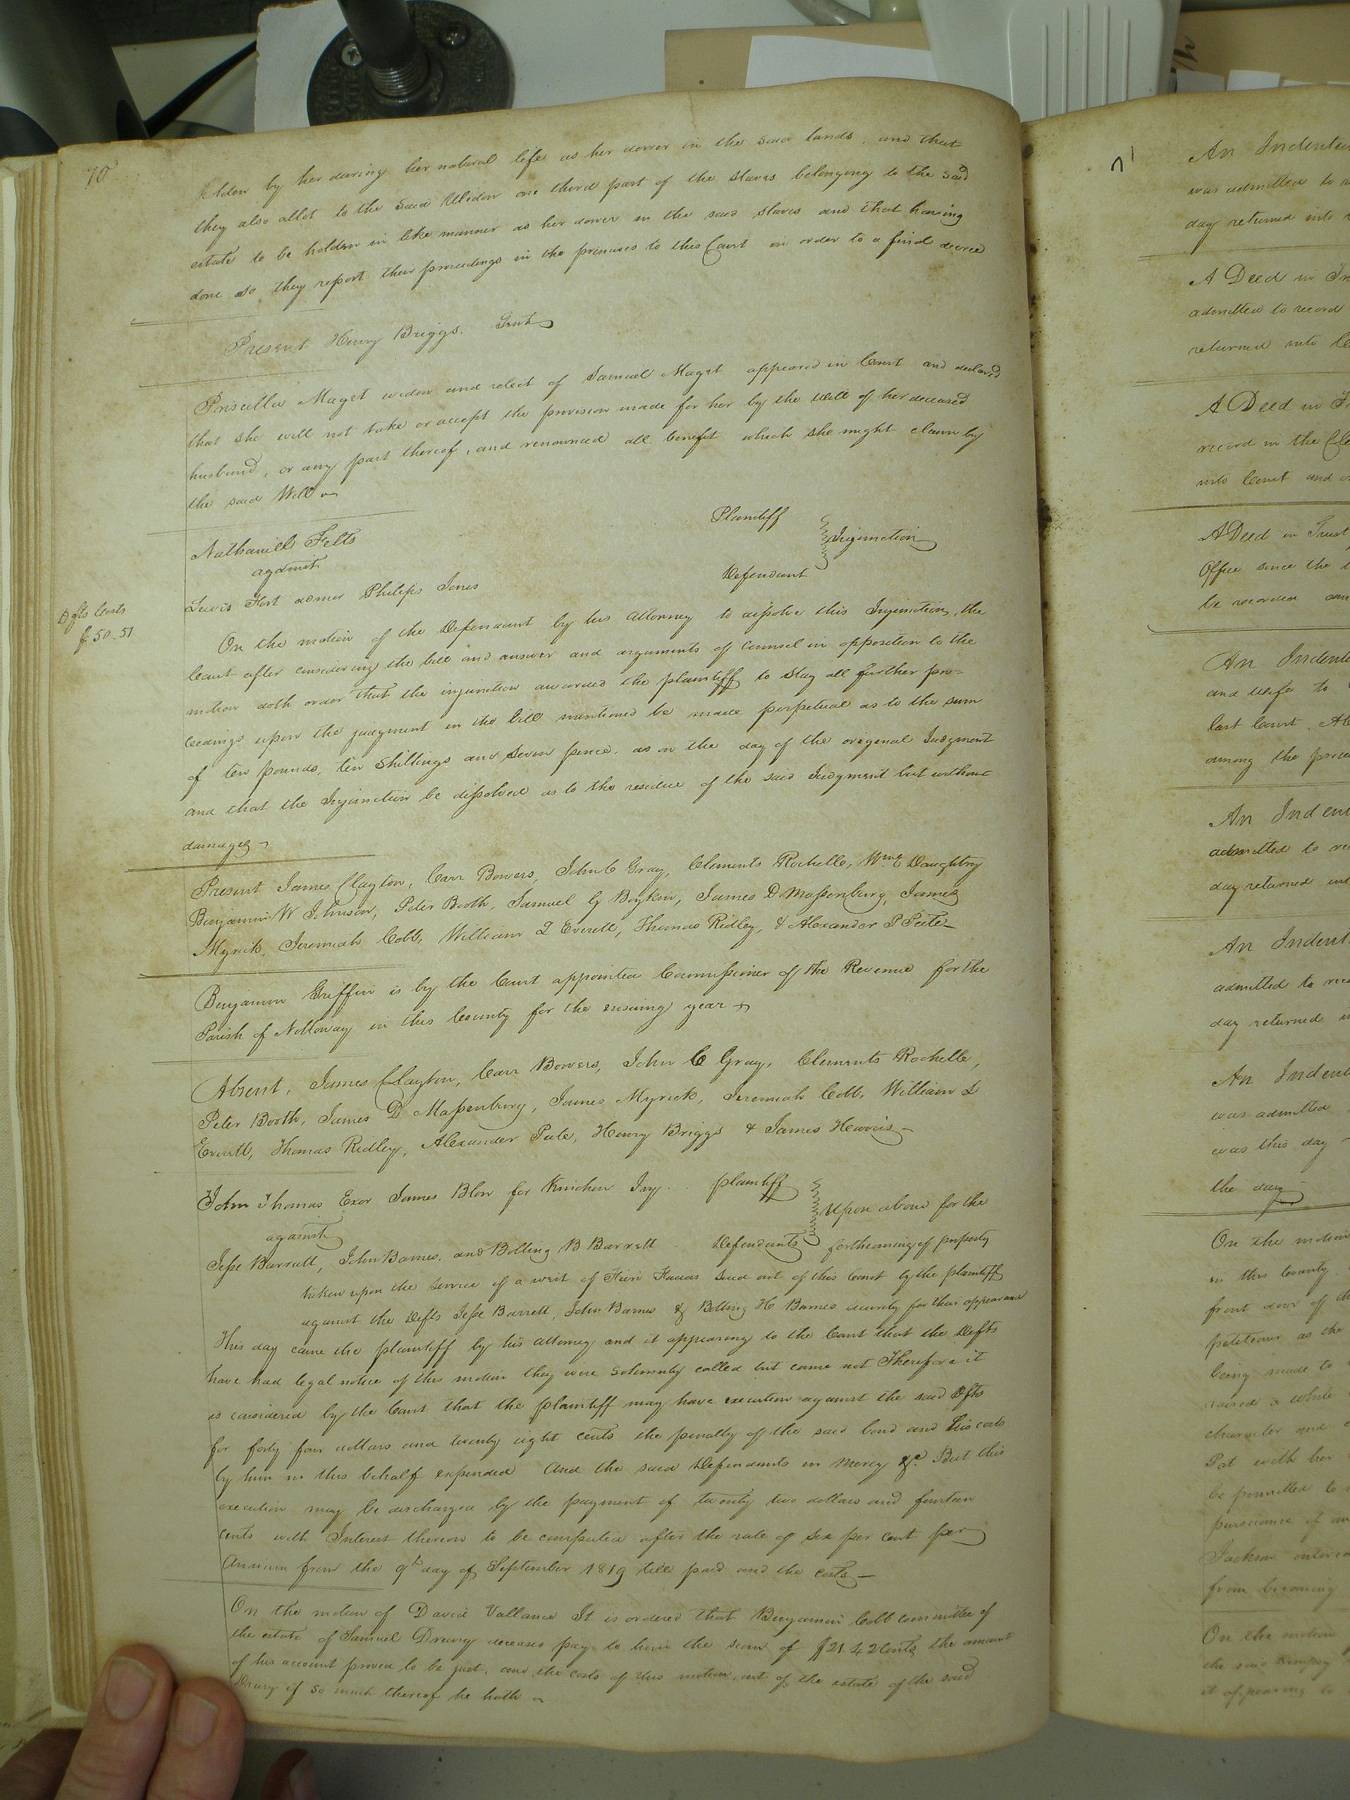 70
holden by her during her natural life as her dower in the said lands, and that
they also allot to the said Widow one third part of the slaves belonging to the said
estate to be holden in like manner as her dower in the said slaves and that having
done so they report their proceedings in the premises to this Court in order to a final decree
Present Henry Briggs. Gent
Priscilla Maget widow and relect of Samuel Maget appeared in Court and declared
that she will not take or accept the provision made for her by the Will of her deceased
husband, or any part thereof, and renounced all benefit which she might claim by
the said Will
Nathaniel Felts Plaintiff
against Injunction
Lewis Fort admor Philips Jones Defendant
Dfts Costs
$ 50.51
On the motion of the Defendant by his attorney to dissolve this Injunction, the
Court after considering the bill and answer and arguments of Counsel in opposition to the
motion doth order that the injunction awarded the plaintiff to stay all further pro-
ceedings upon the judgment in the bill mentioned be made perpetual as to the sum
of ten pounds, ten shillings and seven pence. as on the day of the original Judgment
and that the Injunction be dissolved as to the residue of the said Judgment but without
damages
Present James Clayton, Carr Bowers, John C Gray, Clements Rochelle, Wm E Daughtry
Benjamin W Johnson, Peter Booth, Samuel G Boykin, James D Massenburg, James
Myrick, Jeremiah Cobb, William D Everett, Thomas Ridley, & Alexander P Peete
Benjamin Griffin is by the Court appointed Commissioner of the Revenue for the
Parish of Nottoway in this County for the ensuing year
Absent, James Clayton, Carr Bowers, John C Gray, Clements Rochelle,
Peter Booth, James D Massenburg, James Myrick, Jeremiah Cobb, William D
Everett, Thomas Ridley, Alexander Peete, Henry Briggs & James Harris
John Thomas Exor James Blow for plaintiff
against Upon a bond for the
Jesse Barrett, John Barnes, and Bolling B Barrett Defendants forthcoming of property
taken upon the service of a writ of Fieri Facias sued out of this Court by the plaintiff
against the Defts Jesse Barrett, John Barnes & Bolling H Barnes security for their appearance
This day came the plaintiff by his attorney and it appearing to the Court that the Defts
have had legal notice of this motion they were solemnly called but came not Therefore it
is considered by the Court that the plaintiff may have execution against the said Dfts
for forty four dollars and twenty eight cents the penalty of the said bond and his costs
by him in this behalf expended And the said Defendants in Mercy &c. But this
execution may be discharged by the payment of twenty two dollars and fourteen
cents with Interest thereon to be computed after the rate of six per cent per
Annum from the 9th day of September 1819 till paid and the costs
On the motion of David Vallance It is ordered that Benjamin Cobb committee of
the estate of Samuel Drewry deceased pay to him the sum of $21.42 Cents the amount
of his account proved to be just, and the costs of this motion, out of the estate of the said
Drewry if so much thereof he hath
An Indentu
was admitted to
day returned into
A Deed in In
admitted to record
returned into C
A Deed in T
record in the Cle
into Court and
A Deed in Trust
Office since the
be recorded
An Indent
and wife to
last Court.
among the
An Inden
admitted to
day returned
An Indent
admitted to rec
day returned
An Indent
was admitted
was this day
the day
On the motion
in this County
front door of
petition as the
being made to
raised a white
character and
Pat with her
be permitted to
pursuance of
Jackson
from becoming
On the motion
the said
it appearing to